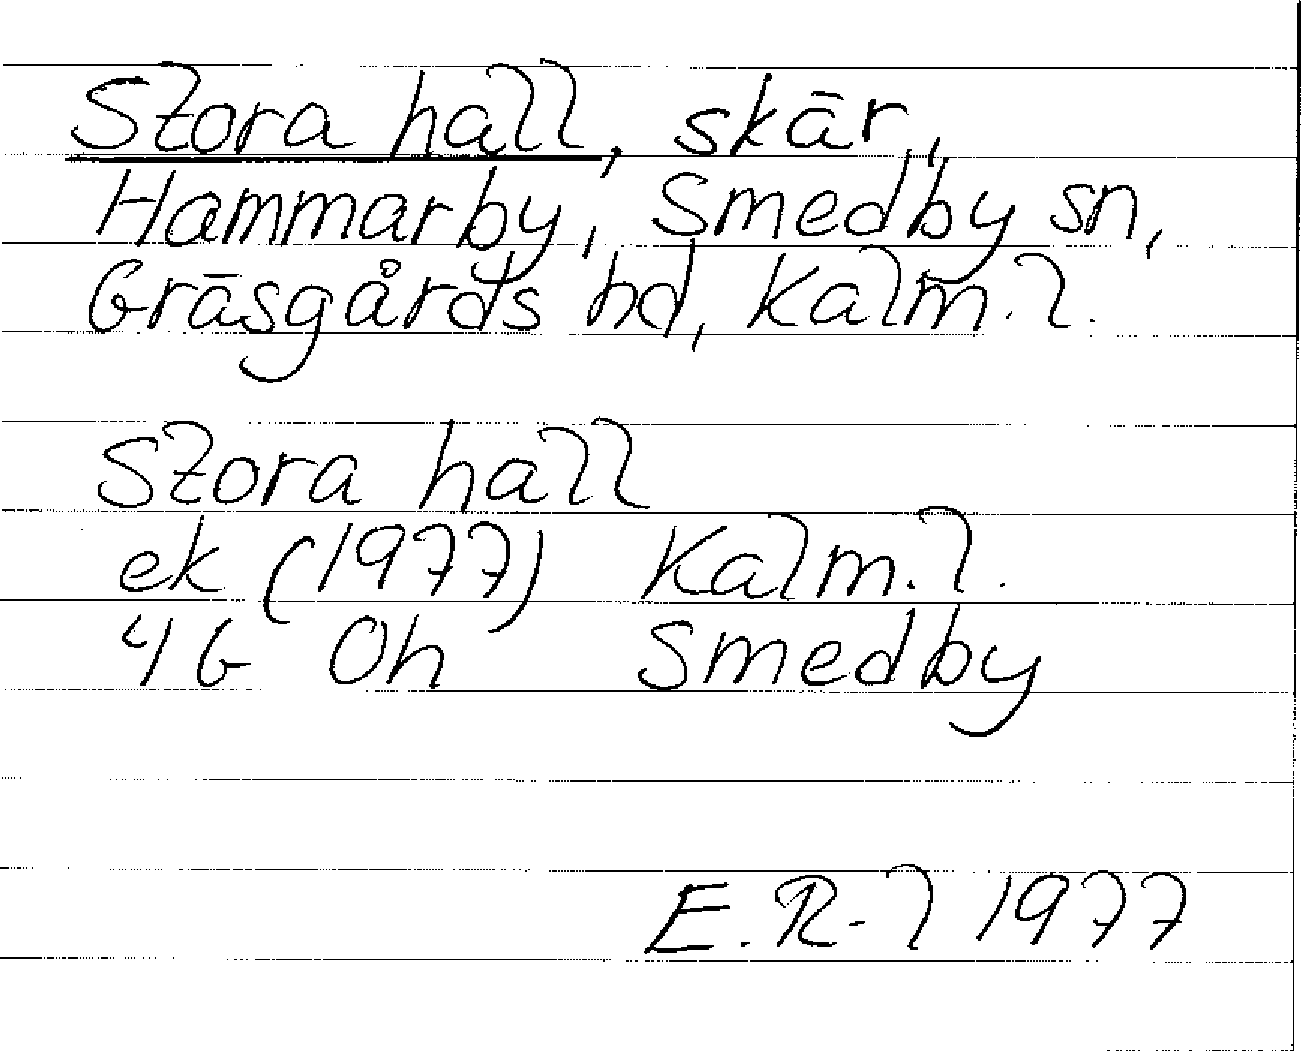 Stora hall, skär,
Hammarby, Smedby sn,
Gräsgårds hd, Kalm. l.
Stora hall
ek (1977) Kalm. l.
4G 0h Smedby
E. R-l 1977